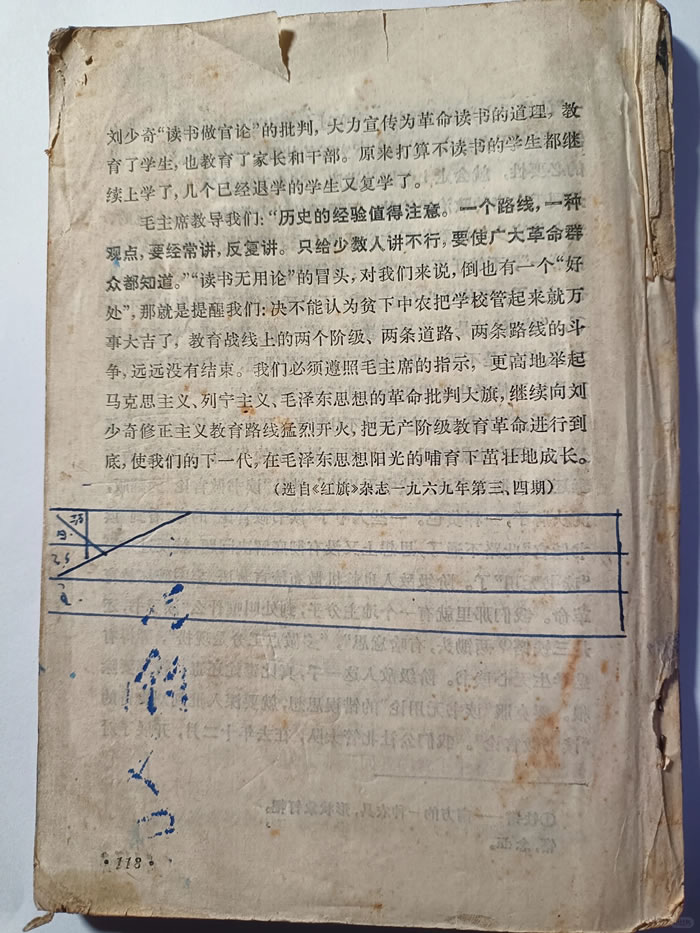 刘少奇“读书做官论”的批判，大力宣传为革命读书的道理，教
育了学生，也教育了家长和干部。原来打算不读书的学生都继
续上学了，几个已经退学的学生又复学了。
毛主席教导我们：“历史的经验值得注意。一个路线，一种
观点，要经常讲，反复讲。只给少数人讲不行，要使广大革命群
众都知道。”“读书无用论”的冒头，对我们来说，倒也有一个“好
处”，那就是提醒我们：决不能认为贫下中农把学校管起来就万
事大吉了，教育战线上的两个阶级、两条道路、两条路线的斗
争，远远没有结束。我们必须遵照毛主席的指示，更高地举起
马克思主义、列宁主义、毛泽东思想的革命批判大旗，继续向刘
少奇修正主义教育路线猛烈开火，把无产阶级教育革命进行到
底，使我们的下一代，在毛泽东思想阳光的哺育下茁壮地成长。
（选自《红旗》杂志一九六九年第三、四期）
·118·